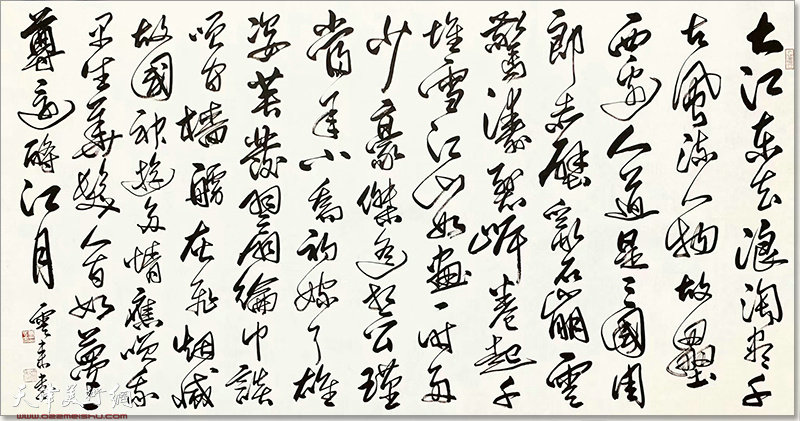 大江东去浪淘尽千
古風流人物故壘
西邊人道是三國周
郎赤壁亂石崩雲
驚濤裂岸卷起千
堆雪江山如畫一時多
少豪傑遙想公瑾
當年小喬初嫁了雄
姿英發羽扇綸巾談
笑间檣艣灰飛烟滅
故國神遊多情應笑我
早生華髮人间如夢一
尊還酹江月
雲
天津美術網
www.022meishu.com